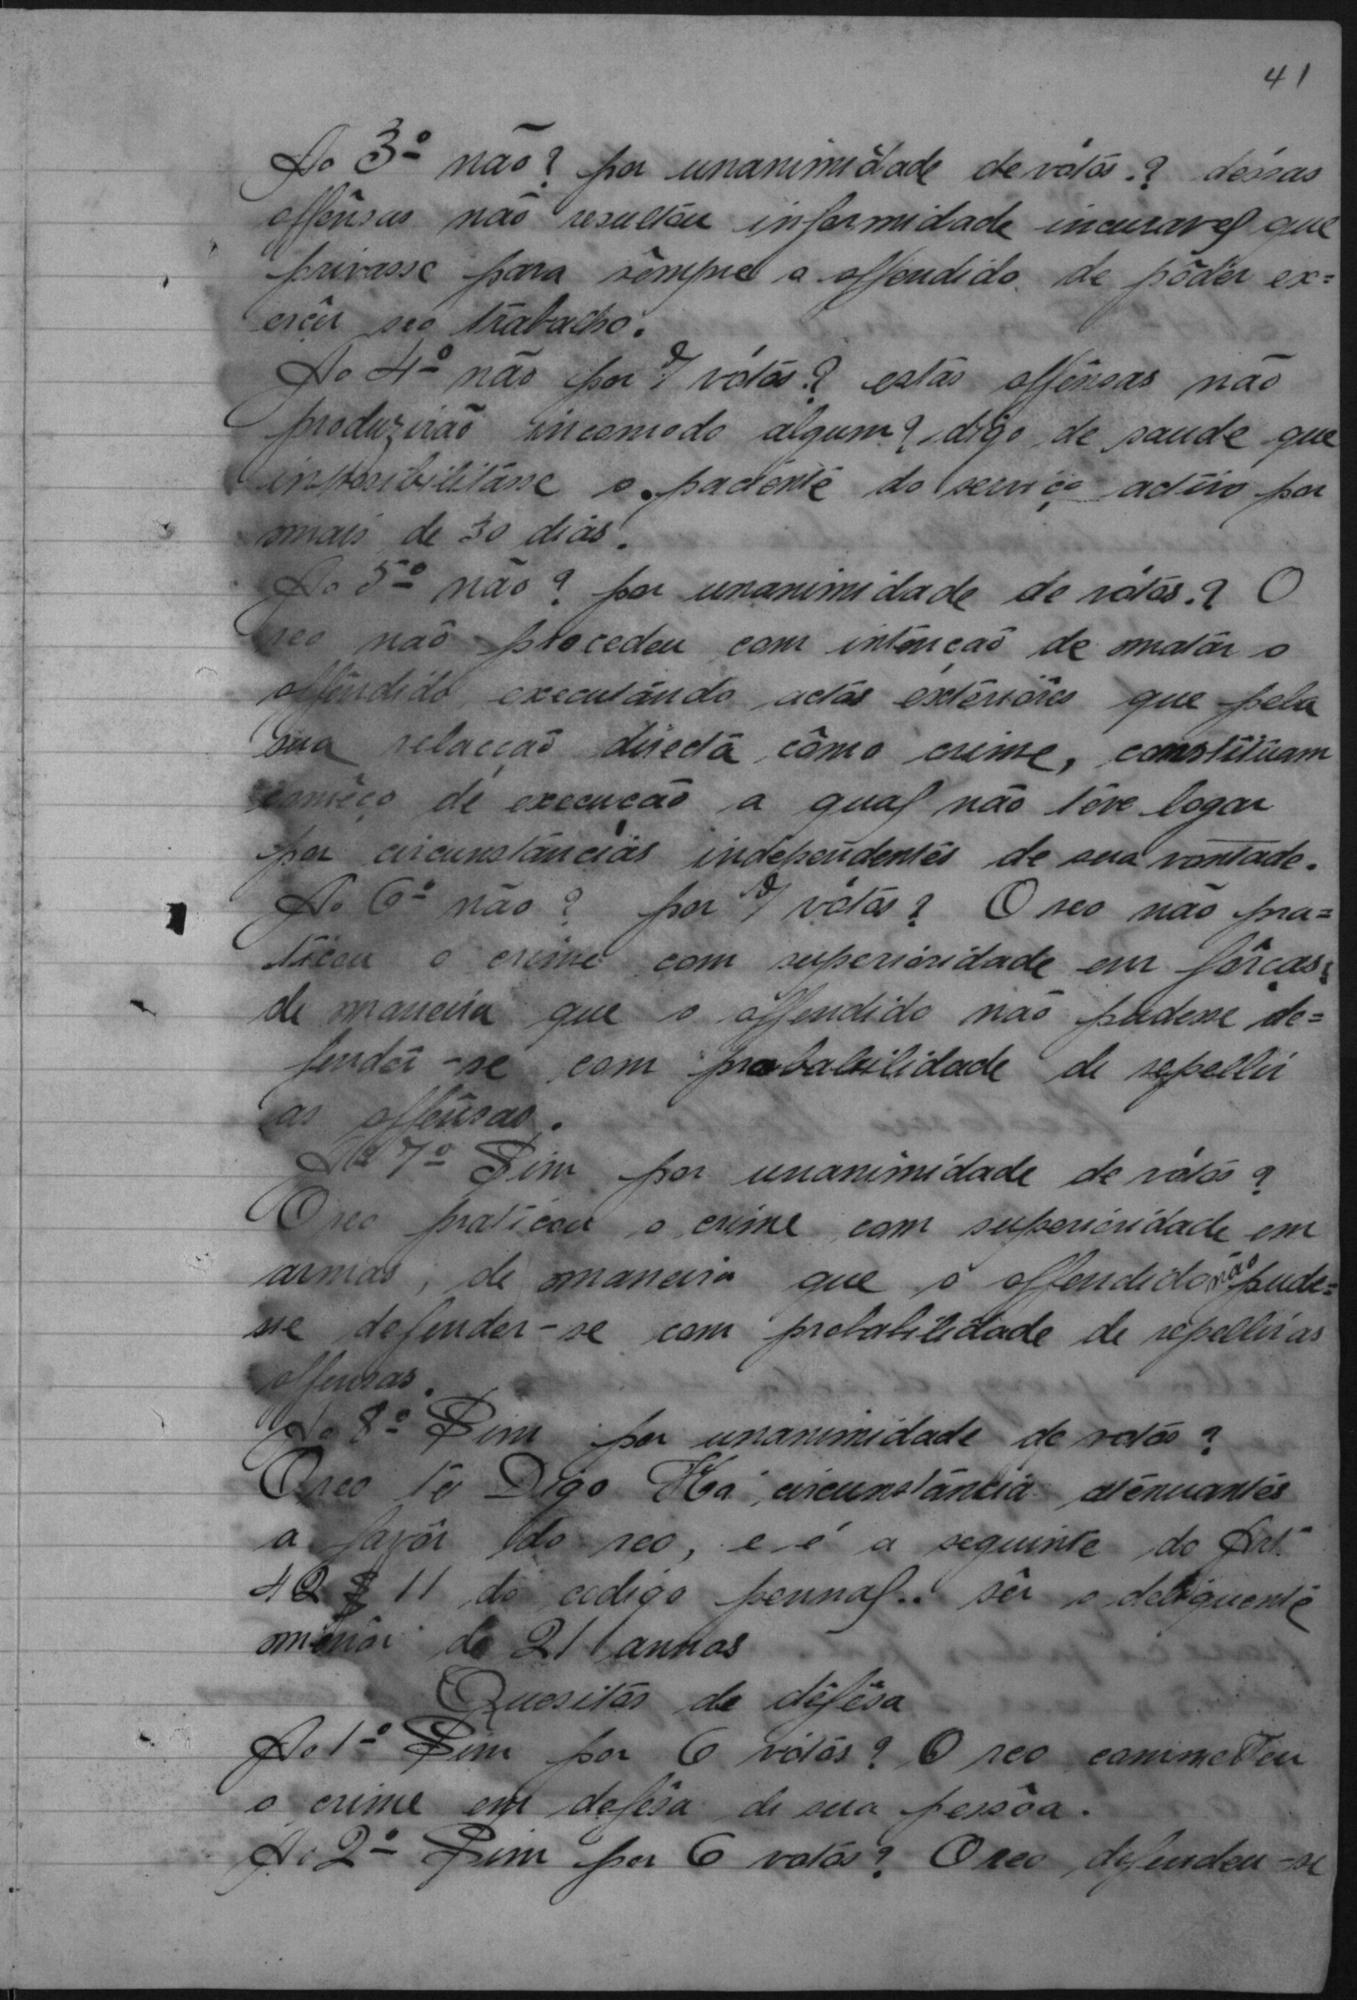 41
Ao 3º não? por unanimidade de vótos.? dessas
offênsas não resultou infermidade incuravel que
privasse para sêmpre o offendido de pôder ex=
ercêr seo trabalho.
Ao 4º não por 7 vótos? estas offênsas não
produzirão incomodo algum? digo de saude que
impossibilitásse o paciente do serviço activo por
mais de 30 dias.
Ao 5º não? por unanimidade de vótos.? O
reo não procedeu com intênção de matár o
offêndido executándo actos extériôres que pela
sua relacção directa cômo crime, constituam
comêço de execução a qual não têve logar
por circunstáncias independentes de sua vontade.
Ao 6º não? por 7 vótos? O reo não pra=
ticou o crime com superioridade em fôrças,
de maneira que o offendido não pudesse de=
fendêr-se com probabilidade de repellir
as offênsas.
Ao 7º Sim por unanimidade de vótos?
O reo praticou o crime com superioridade em
armas, de maneira que o offendido não pude=
sse defender-se com probabilidade de repellir as
offensas.
Ao 8º Sim por unanimidade de votos?
O reo te Digo Há circunstáncia atênuantes
a favôr do reo, e é a seguinte do Art.
42 § 11 do codigo pennal.. sêr o deliquente
menór de 21 annos
Quesitos de défêsa
Ao 1º Sim por 6 vótos? O reo commetteu
o crime em defêsa de sua pessôa.
Ao 2º Sim por 6 votos? O reo defendeu-se